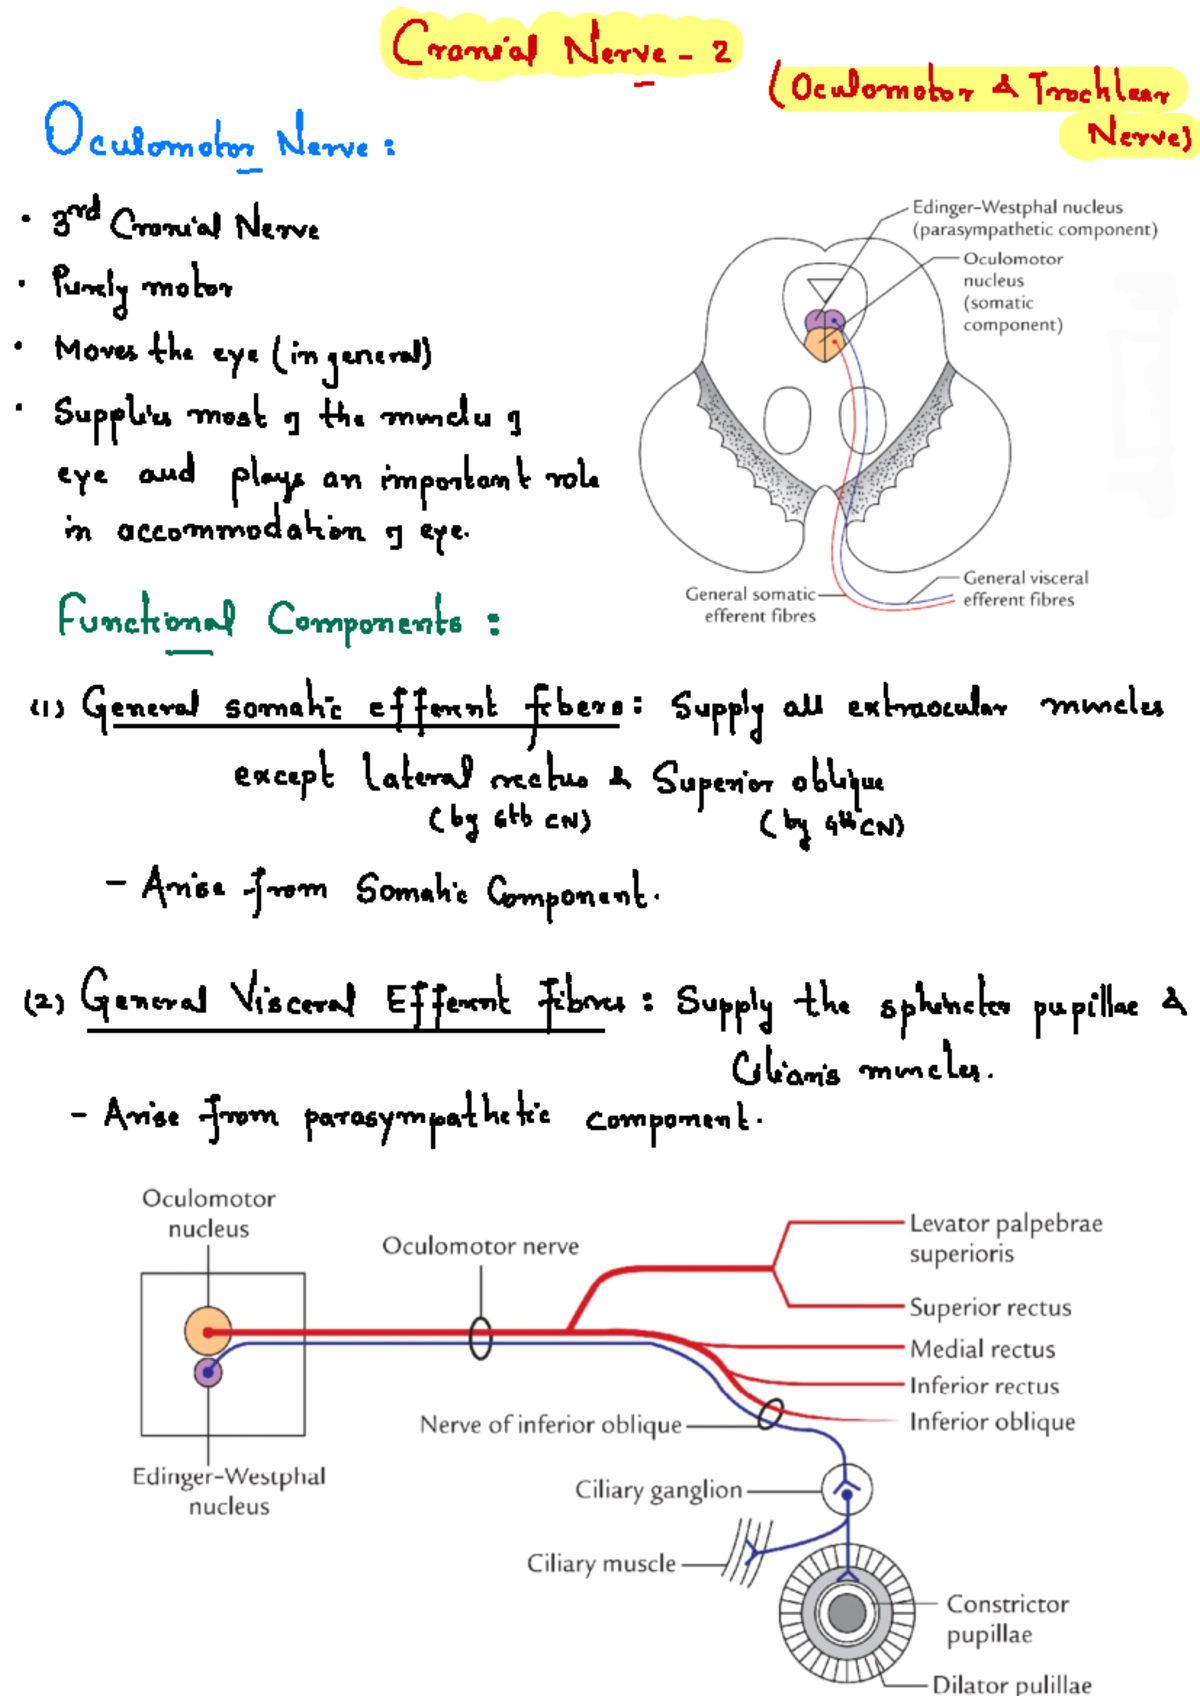 Cranial Nerve - 2
(Oculomotor & Trochlear
Nerve)
Oculomotor Nerve :
• 3rd Cranial Nerve
• Purely motor
• Moves the eye (in general)
• Supplies most of the muscles of
eye and plays an important role
in accommodation of eye.
Edinger-Westphal nucleus
(parasympathetic component)
Oculomotor
nucleus
(somatic
component)
General somatic
efferent fibres
General visceral
efferent fibres
Functional Components :
(1) General somatic efferent fibers : Supply all extraocular muscles
except lateral rectus & Superior oblique
(by 6th CN) (by 4th CN)
- Arise from Somatic Component.
(2) General Visceral Efferent Fibres : Supply the sphincter pupillae &
Ciliaris muscles.
- Arise from parasympathetic component.
Oculomotor
nucleus
Oculomotor nerve
Levator palpebrae
superioris
Superior rectus
Medial rectus
Inferior rectus
Inferior oblique
Nerve of inferior oblique
Edinger-Westphal
nucleus
Ciliary ganglion
Ciliary muscle
Constrictor
pupillae
Dilator pulillae